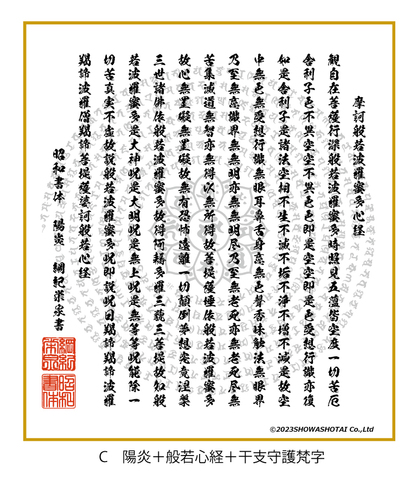 摩訶般若波羅蜜多心経
観自在菩薩行深般若波羅蜜多時照見五蘊皆空度一切苦厄
舎利子色不異空空不異色色即是空空即是色受想行識亦復
如是舎利子是諸法空相不生不滅不垢不浄不増不減是故空
中無色無受想行識無眼耳鼻舌身意無色聲香味触法無眼界
乃至無意識界無無明亦無無明尽乃至無老死亦無老死尽無
苦集滅道無智亦無得以無所得故菩提薩埵依般若波羅蜜多
故心無罣礙無罣礙故無有恐怖遠離一切顛倒夢想究竟涅槃
三世諸佛依般若波羅蜜多故得阿耨多羅三藐三菩提故知般
若波羅蜜多是大神呪是大明呪是無上呪是無等等呪能除一
切苦真実不虚故説般若波羅蜜多呪即説呪曰羯諦羯諦波羅
羯諦波羅僧羯諦菩提薩婆訶般若心経
昭和書体 陽炎 綱紀栄泉書
昭和書体
©2023SHOWASHOTAI Co.,Ltd
C 陽炎＋般若心経＋干支守護梵字